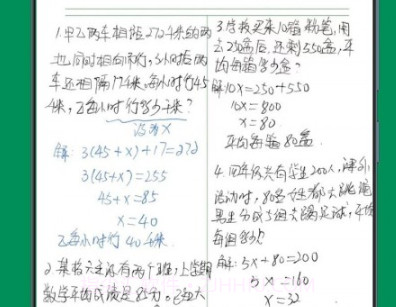 1.甲乙两车相距272千米的两
地,同时相向而行,3小时后两
车还相隔17千米,每小时行45
千米,乙每小时行多少千米?
设为X
解: 3(45+x)+17=272
3(45+x)=255
45+x=85
x=40
乙每小时行40千米.
2.某
数学平均成绩是85分.
3.学校买来10箱粉笔,用
去250盒后,还剩550盒,平
均每箱多少盒?
解10x=250+550
10x=800
x=80
平均每箱80盒
4.四年级共有学生200人,课外
活动时,80名女生都去跳绳
男生分成5组去踢足球,平均
每组多少人
解:5x+80=200
5x=160
x=32